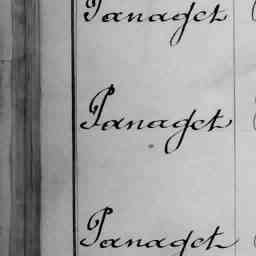 Panaget
Panaget
Panaget